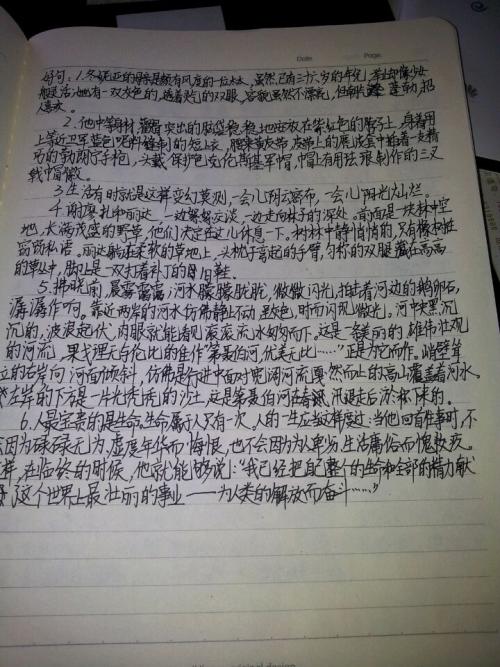 Date Page
好句:1.冬妮亚的母亲是颇有风度的一位太太,虽然已有三十六岁的年纪,举止却像少女
般灵活;她有一双灰色的,透着的双眼,容貌虽然不漂亮,但朝气蓬勃,招
人喜欢。
2.他中等身材,突出的脑袋稳稳地安放在紫红色的脖子上,身着用
上等近卫军蓝色呢料缝制的短上衣,腰束黄皮带,皮带上的皮套中插着一支精
巧的勃朗宁手枪,头戴保护色克伦斯基军帽,帽上有用珐琅制作的三叉
戟中帽徽。
3.生活有时就是这样变幻莫测,一会儿阴云密布,一会儿阳光灿烂。
4.谢廖扎和丽达一边絮絮交谈,一边走向林子的深处。前面是一块林中空
地,长满茂盛的野草,他们决定在这儿休息一下。树林中静悄悄的,只有橡树在
窃窃私语。丽达躺在柔软的草地上,头枕于弯起的手臂,匀称的双腿藏在高高
的草丛中,脚上是一双打着补丁的旧鞋。
5.拂晓前,晨雾霭霭;河水朦朦胧胧,微微闪光,拍击着河边的鹅卵石,
潺潺作响。靠近两岸的河水仿佛静止不动,呈灰色,时而闪现微光。河中央黑沉
沉的,波浪起伏,肉眼就能看见滚滚流水匆匆而下。这是一条美丽的、雄伟壮观
的河流,果戈理无与伦比的佳作“第聂伯河,优美无比……”正是为它而作。峭壁耸
立的右岸向河面倾斜,仿佛是行进中面对宽阔河流戛然而止的高山覆盖着河水。
左岸的下方是一片光秃秃的沙土,这是第聂伯河在春汛退走后淤积下来的。
6.人最宝贵的是生命,生命属于人只有一次,人的一生应当这样度过:当他回首往事时,不
因为碌碌无为、虚度年华而悔恨,也不会因为为人卑劣、生活庸俗而愧疚。
样,在临终的时候,他就能够说:“我已经把自己整个的生命和全部的精力献
这个世界上最壮丽的事业——为人类的解放而奋斗……”